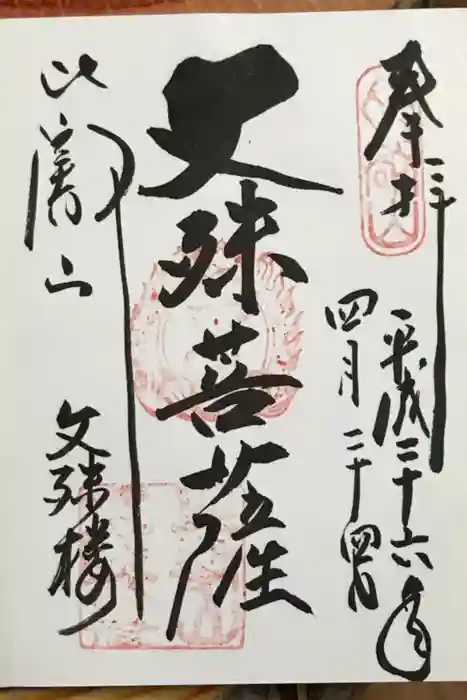 奉拝
平成二十六年
四月二十四日
文殊菩薩
比叡山
文殊楼